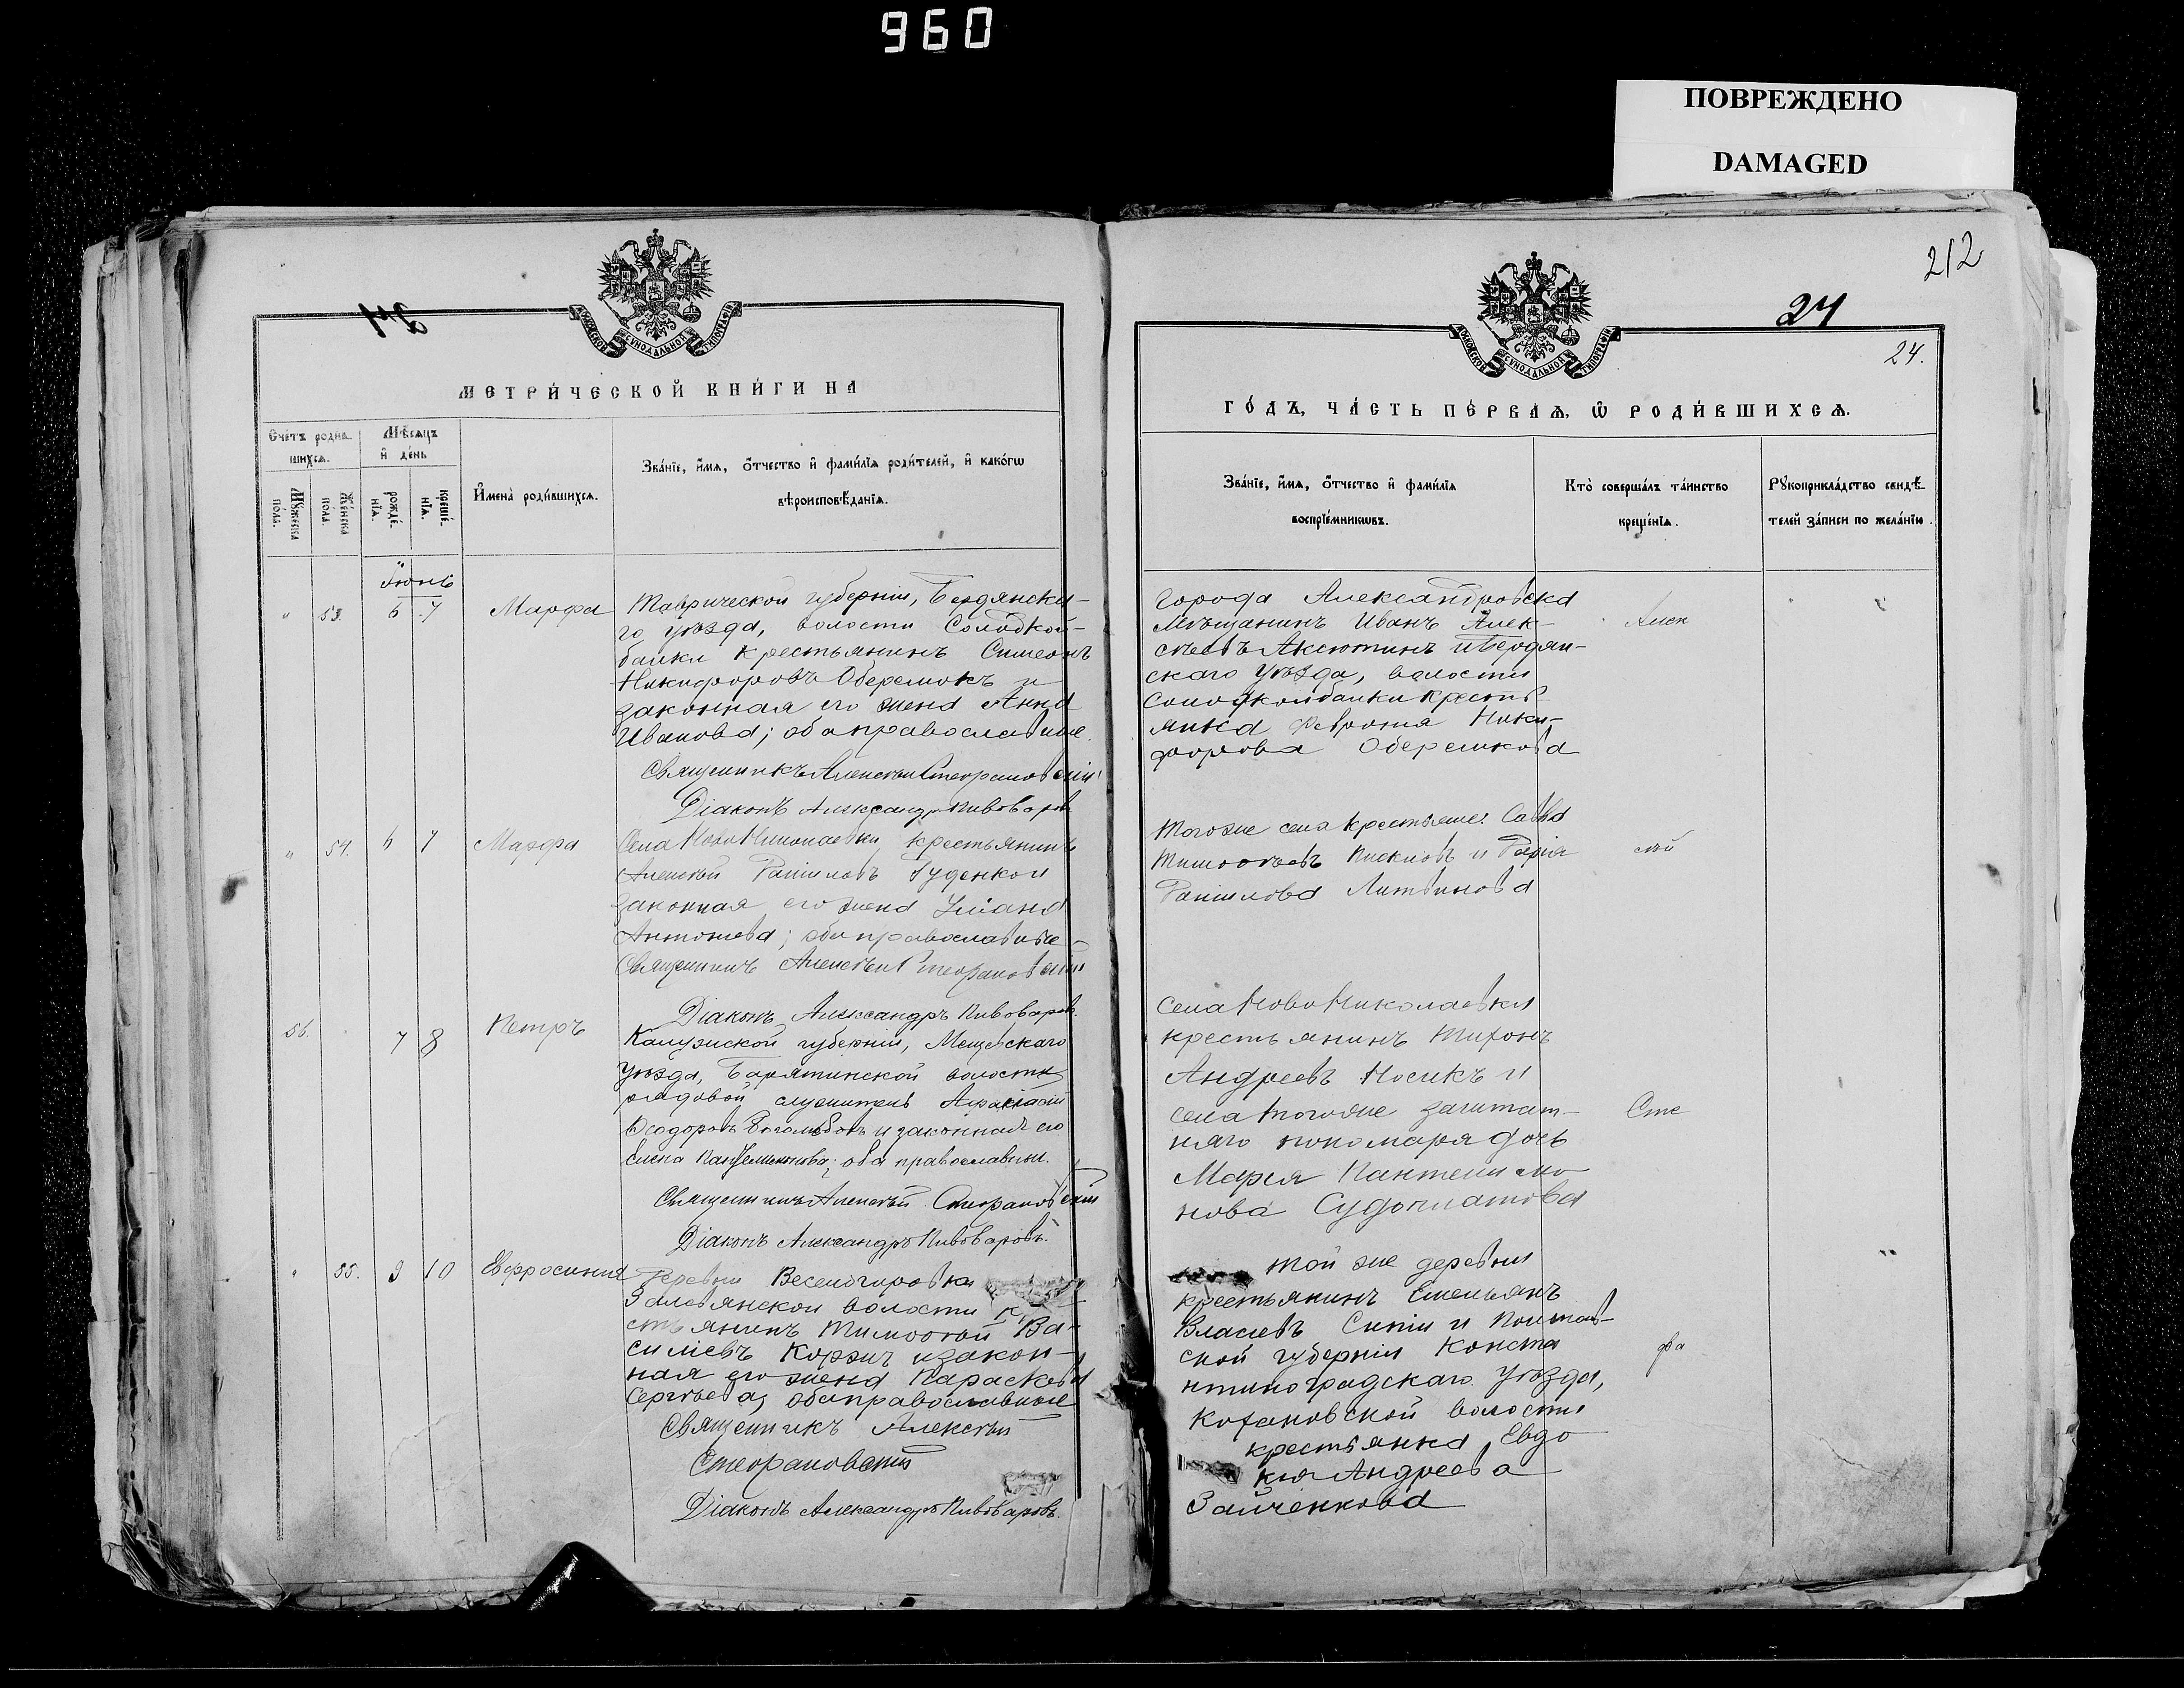 960
ПОВРЕЖДЕНО
DAMAGED
212
24
24.
МОСКОВСКОЙ СѴНОДАЛЬНОЙ ТИПОГРАФІИ
МЕТРИ́ЧЕСКОЙ КНИ́ГИ НА
Счетъ родив-
шихся.
Мѣсяцъ
и҆ де́нь
Мꙋжеска
пола.
Же́нска
пола.
рожде́-
нїѧ.
креще́-
нїѧ.
И҆мена̀ роди́вшихсѧ.
Зва́нїе, и҆́мѧ, ѻ҆́тчество и҆ фами́лїѧ роди́телей, и҆ како́гѡ
вѣроисповѣ́данїѧ.
Іюнь
" 53. 6 7 Марфа
Таврической губерніи, Бердянска-
го уѣзда, волости Солодкой-
балки крестьянинъ Симеонъ
Никифоровъ Оберемокъ и
законная его жена Анна
Иванова; оба православные.
Священникъ Алексѣй Стефановскій
Діаконъ Александръ Пивоваровъ
" 54. 6 7 Марфа
Села НовоНиколаевки, крестьянинъ
Алексѣй Даніиловъ Гуденко и
законная его жена Уліана
Антонова; оба православные
Священникъ Алексѣй Стефановскій
Діаконъ Александръ Пивоваровъ.
56. 7 8 Петръ
Калужской губерніи, Мещовскаго
уѣзда, Барятинской волости
рядовой служитель Афанасій
Ѳеодоровъ и законная его
Елена оба православные.
Священникъ Алексѣй Стефановскій
Діаконъ Александръ Пивоваровъ.
" 55. 9 10 Евфросинія
Деревни Веселогировки
волости кре
стьянинъ Тимоѳей Ва-
сильевъ Коржъ и закон-
ная его жена Параскева
Сергѣева, оба православные
Священникъ Алексѣй
Стефановскій
Діаконъ Александръ Пивоваровъ.
МОСКОВСКОЙ СѴНОДАЛЬНОЙ ТИПОГРАФІИ
ГО́ДЪ, ЧА́СТЬ ПЕ́РВАѦ, Ѽ РОДИ́ВШИХСѦ.
Зва́нїе, и҆́мѧ, ѻ҆́тчество и҆ фами́лїѧ
воспрїе́мникѡвъ.
Кто̀ соверша́лъ та́инство
креще́нїѧ.
Рꙋкоприкла́дство свидѣ́-
телей за́писи по жела́нїю.
города Александровска
мѣщанинъ Иванъ Алек-
сѣевъ Аксютинъ и Бердян-
скаго уѣзда, волости
Солодкойбалки кресть
янка Феврония Ники-
форова Оберемкова
Алек
Тогоже села крестьяне: Савва
Тимоѳеевъ Писклов и Дарія
Даніилова Литвинова
сѣй
Села НовоНиколаевки
крестьянинъ Тихонъ
Андреевъ Носикъ и
села тогоже заштат-
наго пономаря дочь
Марія Пантелеимо
нова Судоплатова
Сте
той же деревни
крестьянинъ Емельянъ
Власіевъ Сипій и Полтав-
ской губерніи Конста
нтиноградскаго уѣзда,
Кохановской волости
крестьянка Евдо
кія Андреева
Зайченкова
фа